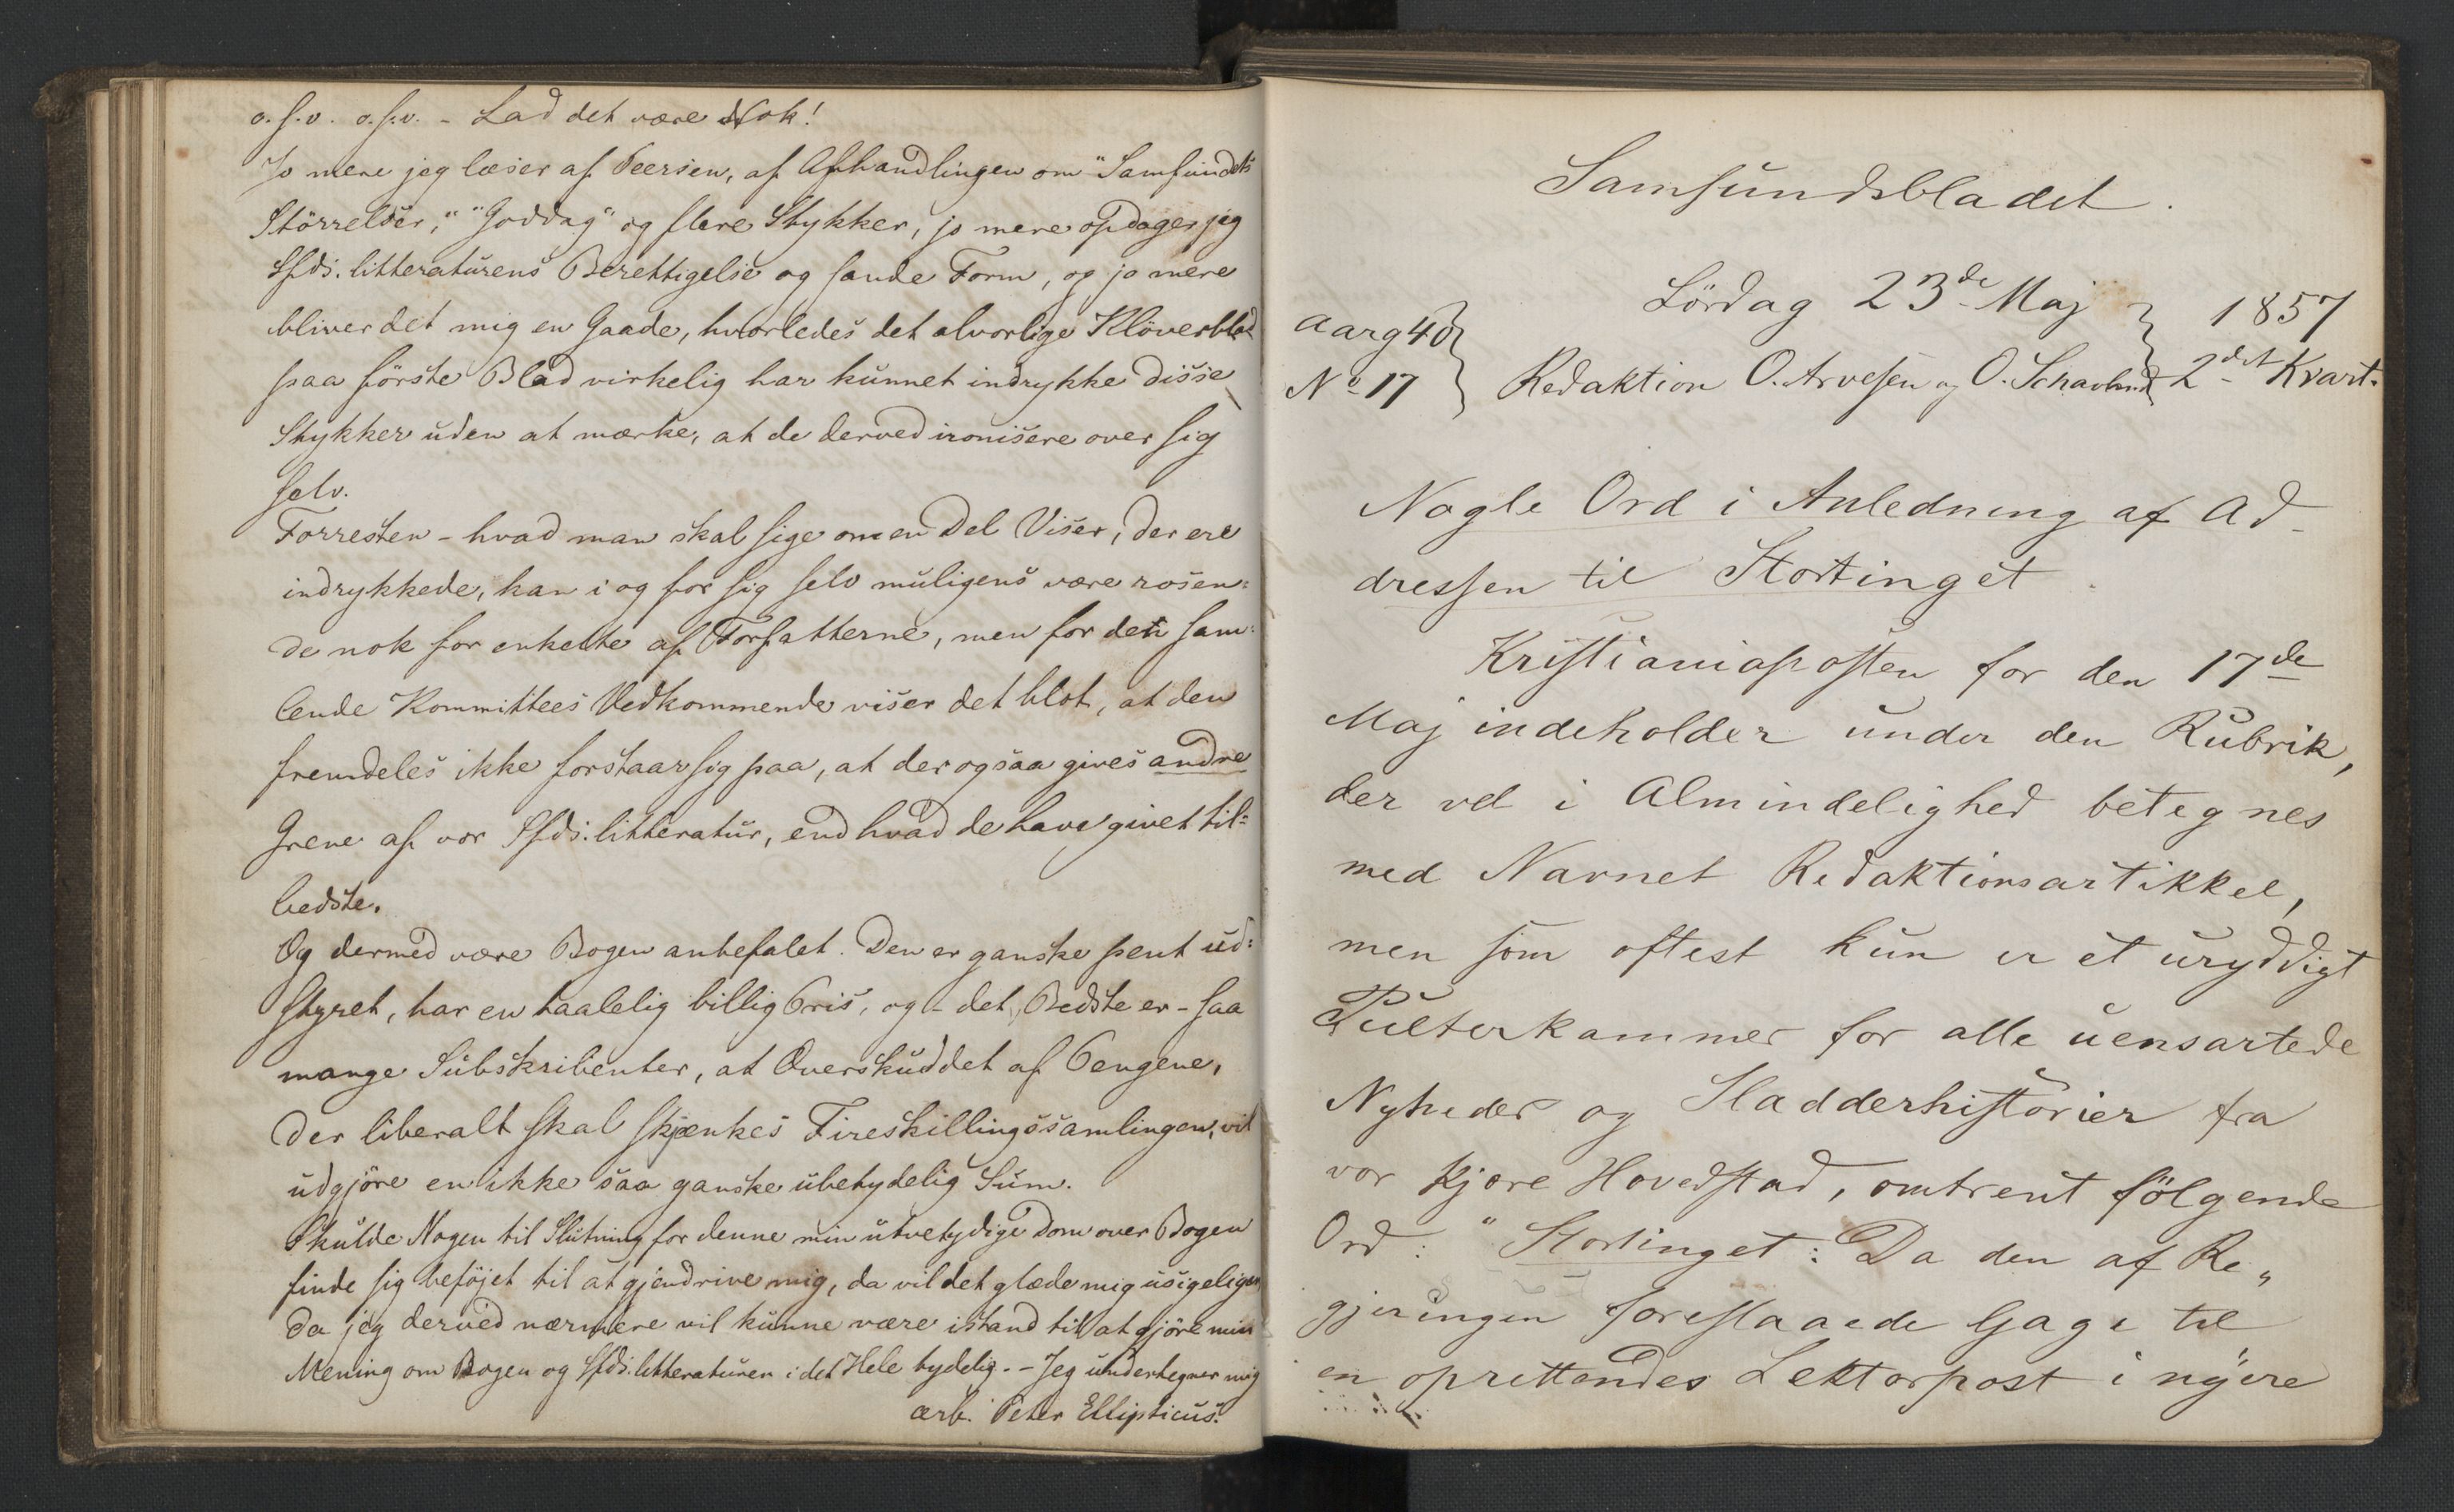 o.s.v. o.s.v. - Lad det være Nok!
Jo mere jeg læser af Peersen, af Afhandlingen om "Samfundets
Störrelser," "Goddag" og flere Stykker, jo mere opdager jeg
Sfds. litteraturens Berettigelse og sande Form, og jo mere
bliver det mig en Gaade, hvorledes det alvorlige Klöverblad
paa förste Blad virkelig har kunnet indrykke disse
Stykker uden at mærke, at de derved ironisere over sig
selv.
Forresten - hvad man skal sige om en Del Viser, der ere
indrykkede, kan i og for sig selv muligens være rosen=
de nok for enkelte af Forfatterne, men for den sam=
lende Kommittees Vedkommende viser det blot, at den
fremdeles ikke forstaar sig paa, at der ogsaa gives andre
Grene af vor Sfds. litteratur, end hvad de have givet til=
bedste.
Og dermed være Bogen anbefalet. Den er ganske pent ud=
styret, har en taalelig billig Pris, og - det Bedste er - saa
mange Subskribenter, at Overskuddet af Pengene,
der liberalt skal skjænkes Fireskillingssamlingen, vil
udgjöre en ikke saa ganske ubetydelig Sum.
Skulde Nogen til Slutning for denne min utvetydige Dom over Bogen
finde sig beföjet til at gjendrive mig, da vil det glæde mig usigeligen
da jeg derved nærmere vil kunne være istand til at gjöre min
Mening om Bogen og Sfds. litteraturen i det Hele tydelig. - Jeg undertegner mig
ærb. Peter Ellipticus.
Samfundsbladet.
Lördag 23de Maj 1857
Aarg 40
No 17 Redaktion O. Arvesen og O. Schavland 2det Kvart.
Nogle Ord i Anledning af Ad-
dressen til Stortinget.
Kristianiaposten for den 17de
Maj indeholder under den Rubrik,
der vel i Almindelighed betegnes
med Navnet Redaktionsartikkel,
men som oftest kun er et uryddigt
Pulterkammer for alle uensartede
Nyheder og Sladderhistorier fra
vor kjære Hovedstad, omtrent fölgende
Ord: "Stortinget: Da den af Re„
gjeringen foreslaaede Gage til
en oprettendes Lektorpost i nyere